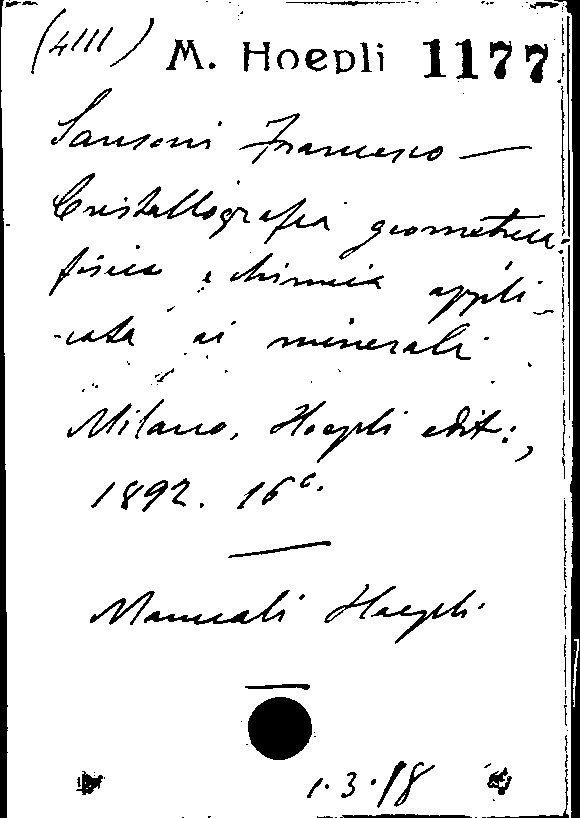 (4111) M. Hoepli 1177
Sansoni Francesco —
Cristallografia geometrica
fisica e chimica appli-
-cata ai minerali
Milano, Hoepli edit:,
1892. 16°.
Manuali Hoepli.
1.3.18